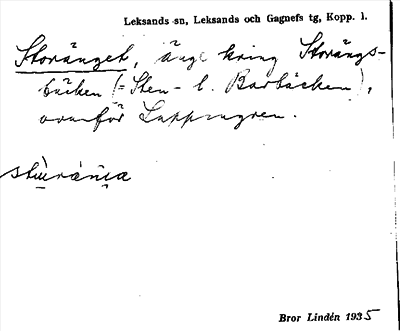 Leksands sn, Leksands och Gagnefs tg, Kopp. l.
Storänget, änge kring Storängs-
bäcken (= Sten- l. Barbäcken),
ovanför
Bror Lindén 1935